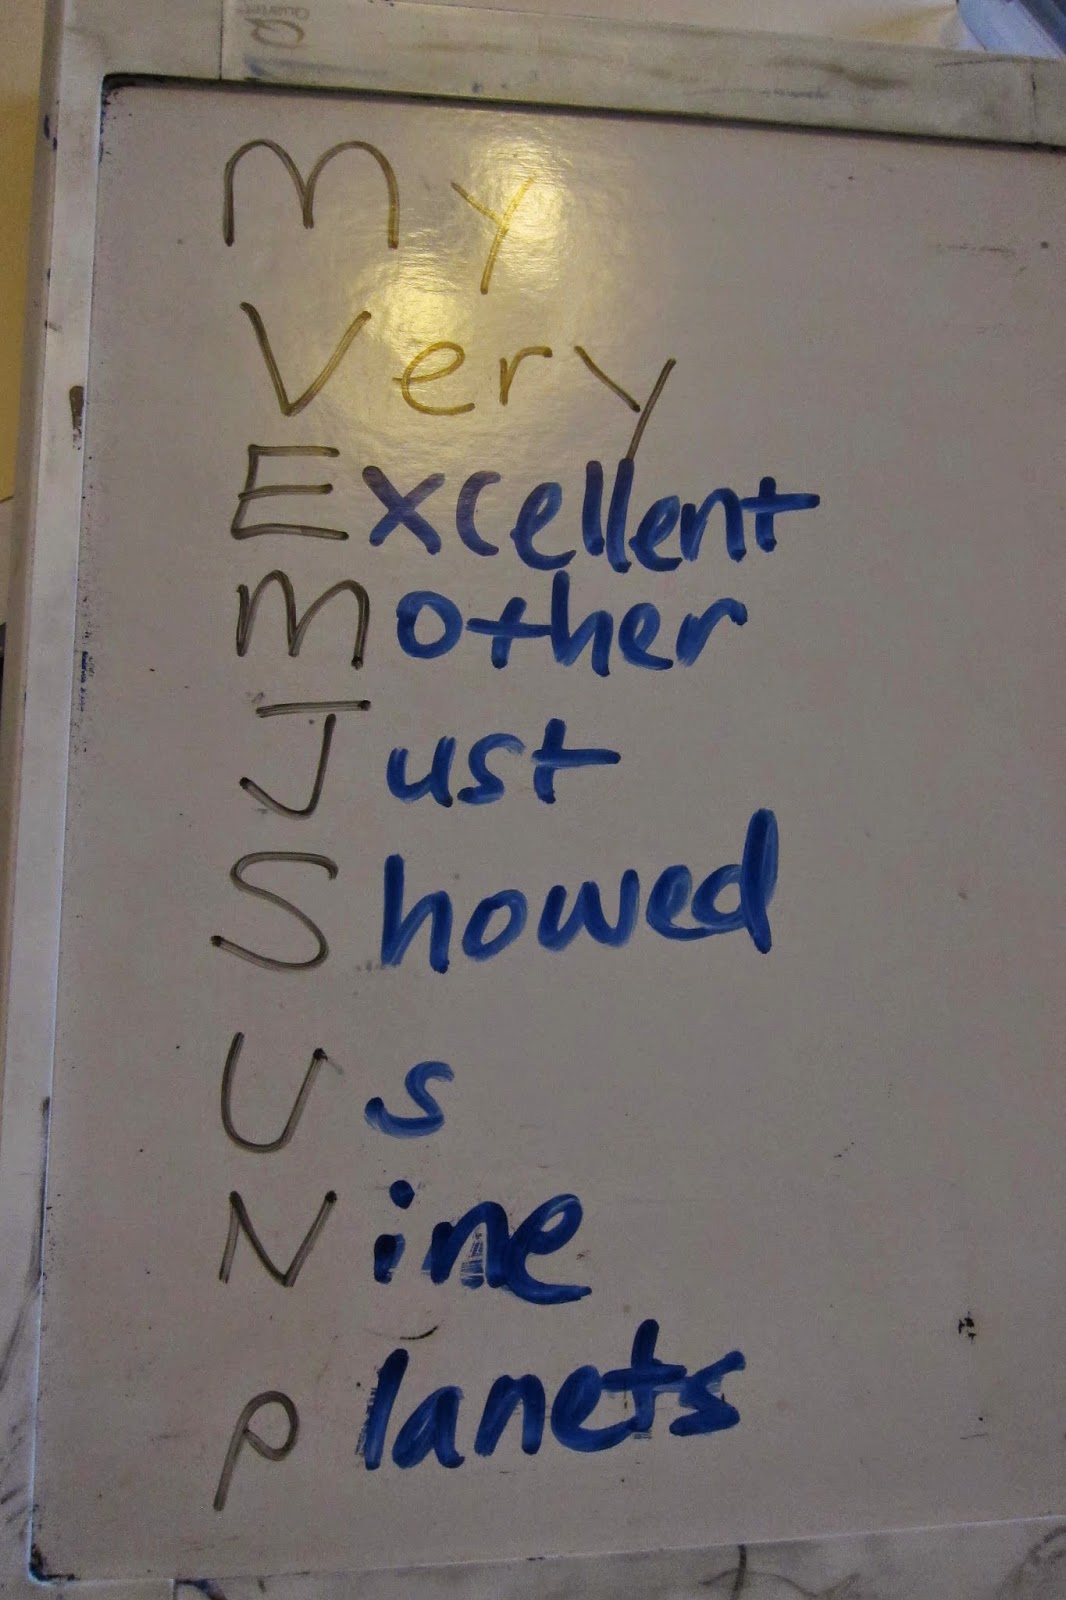 QUARTET
My
Very
Excellent
Mother
Just
Showed
Us
Nine
planets